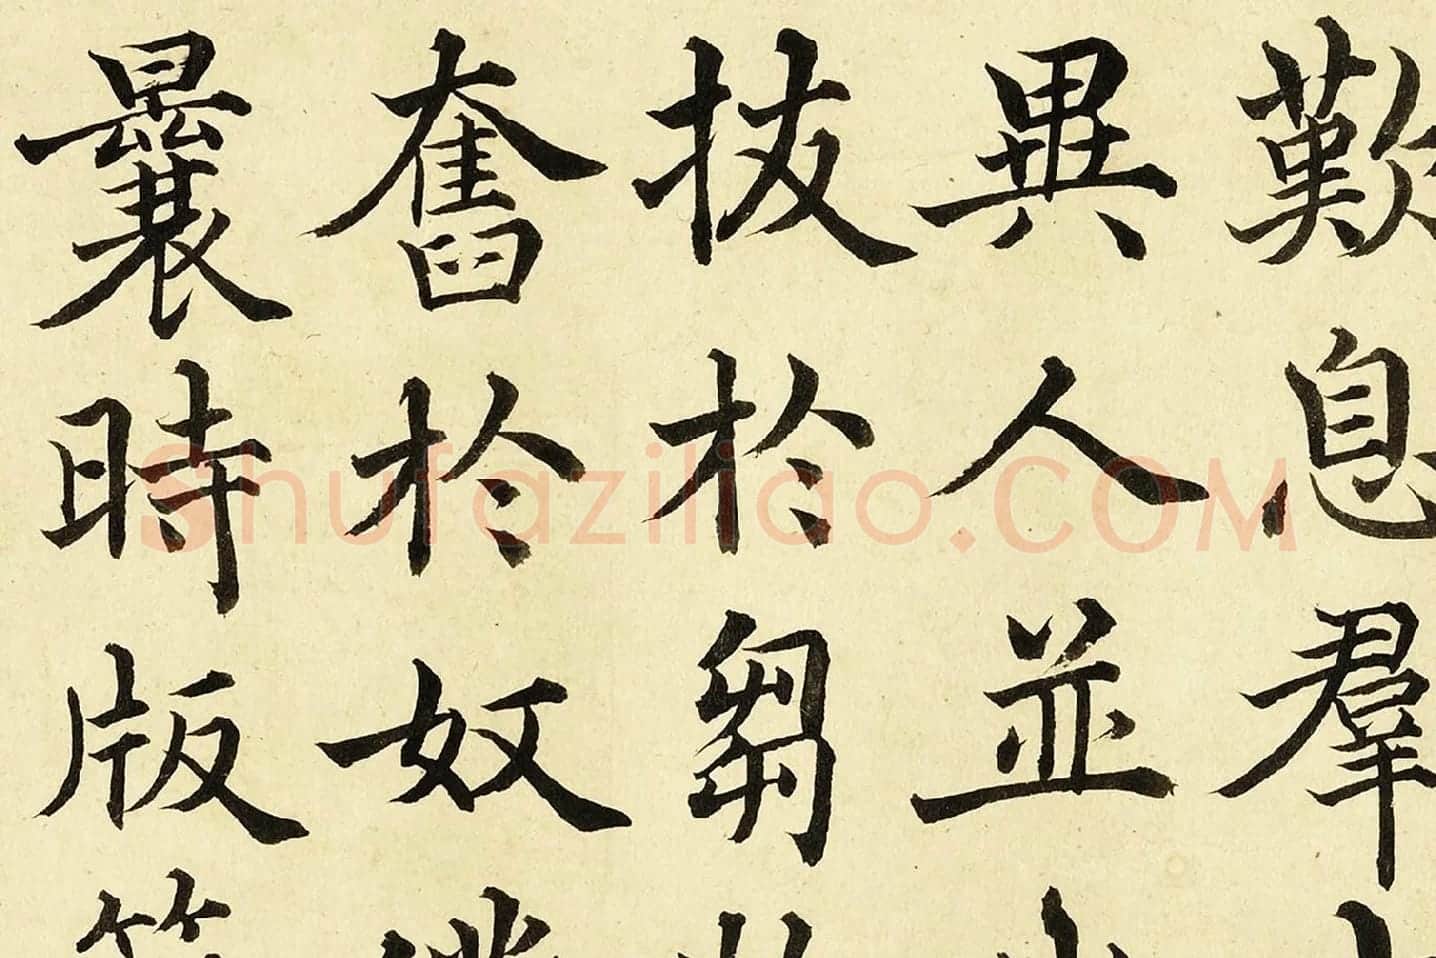 歎息羣
異人並
拔於芻
奮於奴
曩時版
Shufaziliao.COM